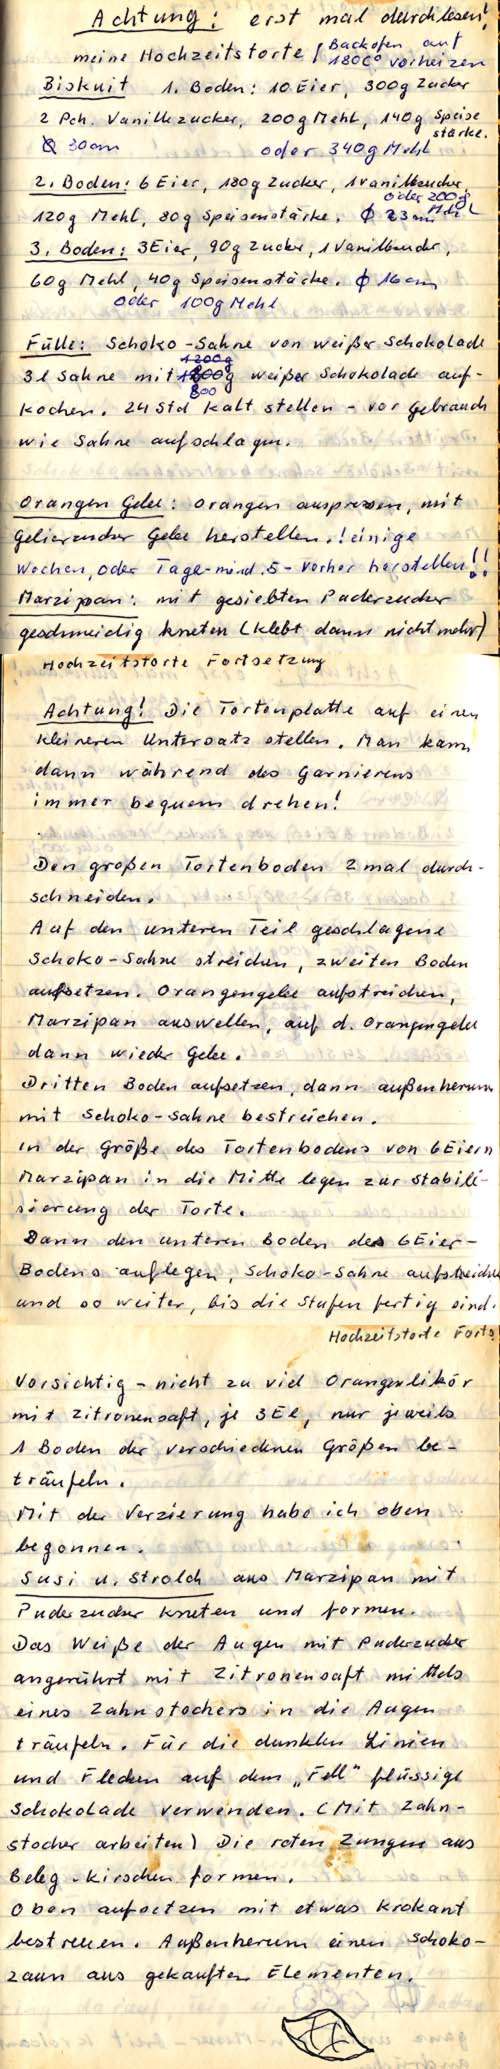 Achtung: erst mal durchlesen!
meine Hochzeitstorte / Backofen auf
180C° vorheizen
Biskuit 1. Boden: 10 Eier, 300g Zucker
2 Pch. Vanillezucker, 200g Mehl, 140g Speise
stärke.
Ø 30cm oder 340g Mehl
2. Boden: 6 Eier, 180g Zucker, 1 Vanillezucker,
oder 200g
Mehl
120g Mehl, 80g Speisenstärke. Ø 23cm
3. Boden: 3 Eier, 90g Zucker, 1 Vanillezucker,
60g Mehl, 40g Speisenstäcke. Ø 16cm
oder 100g Mehl
Fülle: Schoko-Sahne von weißer Schokolade
1200g
3l Sahne mit g weißer Schokolade auf-
800
kochen. 24 Std kalt stellen - vor Gebrauch
wie Sahne aufschlagen.
Orangen Gelee: Orangen auspressen, mit
Gelierzucker Gelee herstellen. ! einige
Wochen, oder Tage - mind. 5 - vorher herstellen!!
Marzipan: mit gesiebten Puderzucker
geschmeidig kneten (klebt dann nicht mehr)
Hochzeitstorte Fortsetzung
Achtung! Die Tortenplatte auf einen
kleineren Untersatz stellen. Man kann
dann während des Garnierens
immer bequem drehen!
Den großen Tortenboden 2 mal durch-
schneiden.
Auf den unteren Teil geschlagene
Schoko-Sahne streichen, zweiten Boden
aufsetzen. Orangengelee aufstreichen,
Marzipan auswellen, auf d. Orangengelee
dann wieder Gelee.
Dritten Boden aufsetzen, dann außenherum
mit Schoko-Sahne bestreichen.
In der Größe des Tortenbodens von 6 Eiern
Marzipan in die Mitte legen zur Stabili-
sierung der Torte.
Dann den unteren Boden des 6 Eier-
Bodens auflegen, Schoko-Sahne aufstreichen
und so weiter, bis die Stufen fertig sind.
Hochzeitstorte Forts.
Vorsichtig - nicht zu viel Orangenlikör
mit Zitronensaft, je 3 El, nur jeweils
1 Boden der verschiedenen Größen be-
träufeln.
Mit der Verzierung habe ich oben
begonnen.
Susi u. Strolch aus Marzipan mit
Puderzucker kneten und formen.
Das Weiße der Augen mit Puderzucker
angerührt mit Zitronensaft mittels
eines Zahnstochers in die Augen
träufeln. Für die dunklen Linien
und Flecken auf dem „Fell" flüssige
Schokolade verwenden. (Mit Zahn-
stocher arbeiten) Die roten Zungen aus
Beleg-kirschen formen.
Oben aufsetzen mit etwas Krokant
bestreuen. Außenherum einen Schoko-
zaun aus gekauften Elementen.